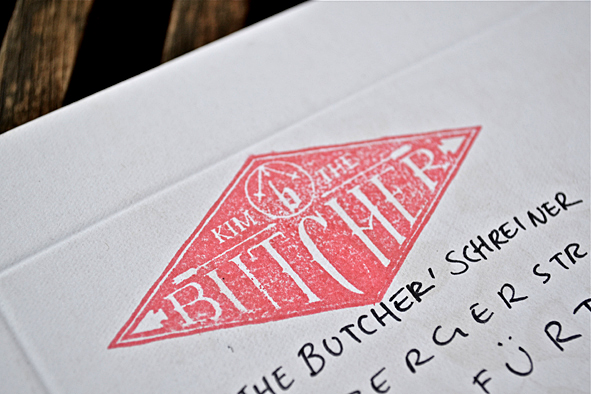 KIM b THE
BUTCHER
THE BUTCHER' SCHREINER
BERGERSTR
FÜRT